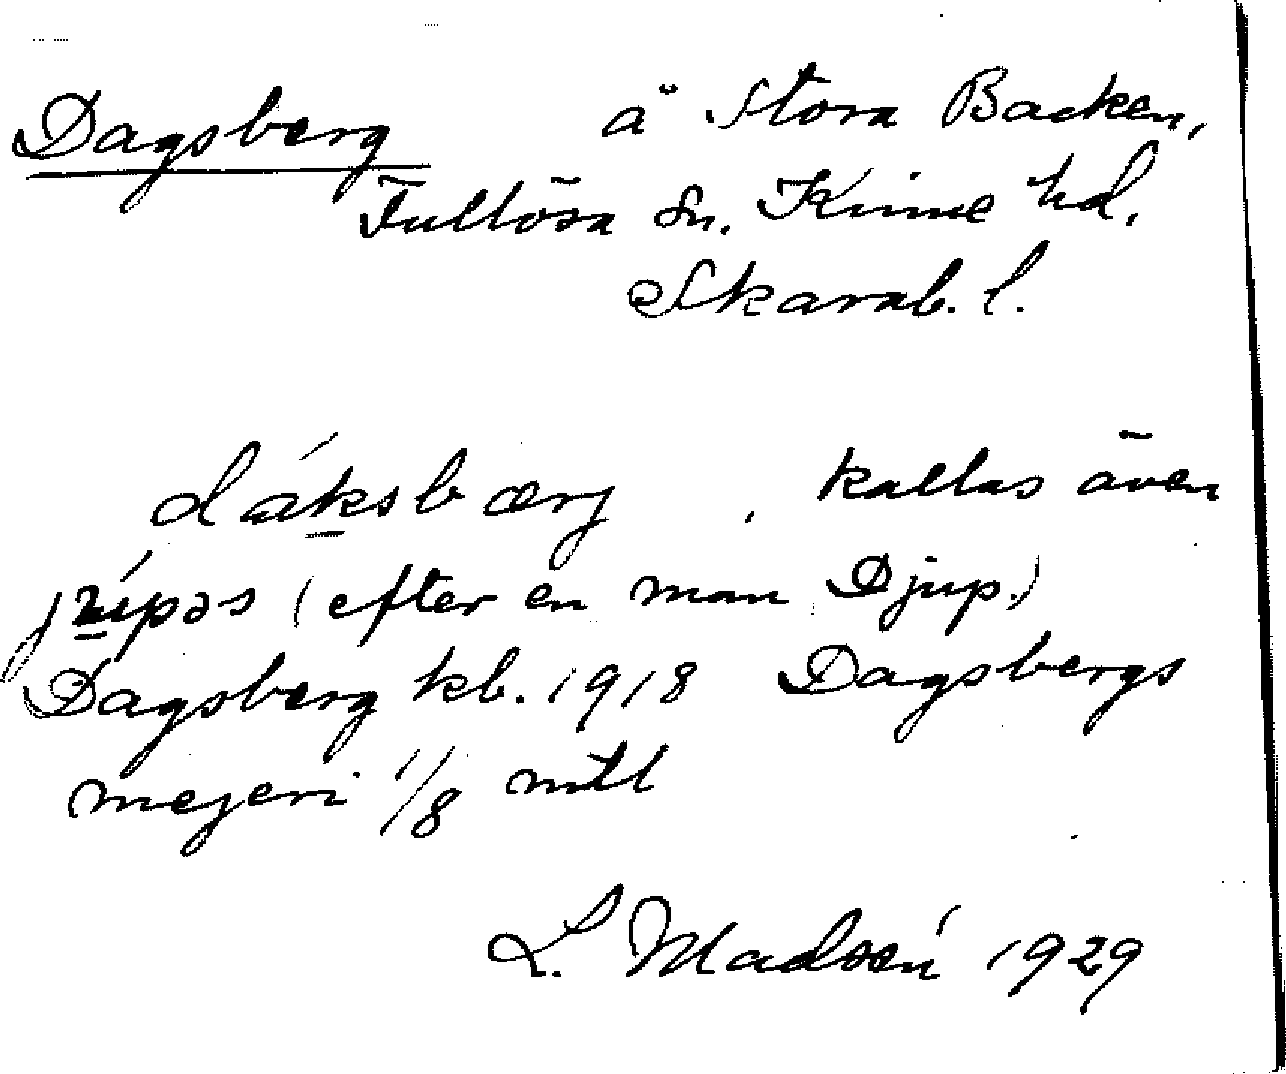 Dagsberg å Stora Backen,
Fullösa sn. Kinne hd.
Skarab. l.
dáksbærj , kallas även
(efter en man Djup.)
Dagsberg kb. 1918 Dagsbergs
mejeri 1/8 mtl
L. Madsén 1929